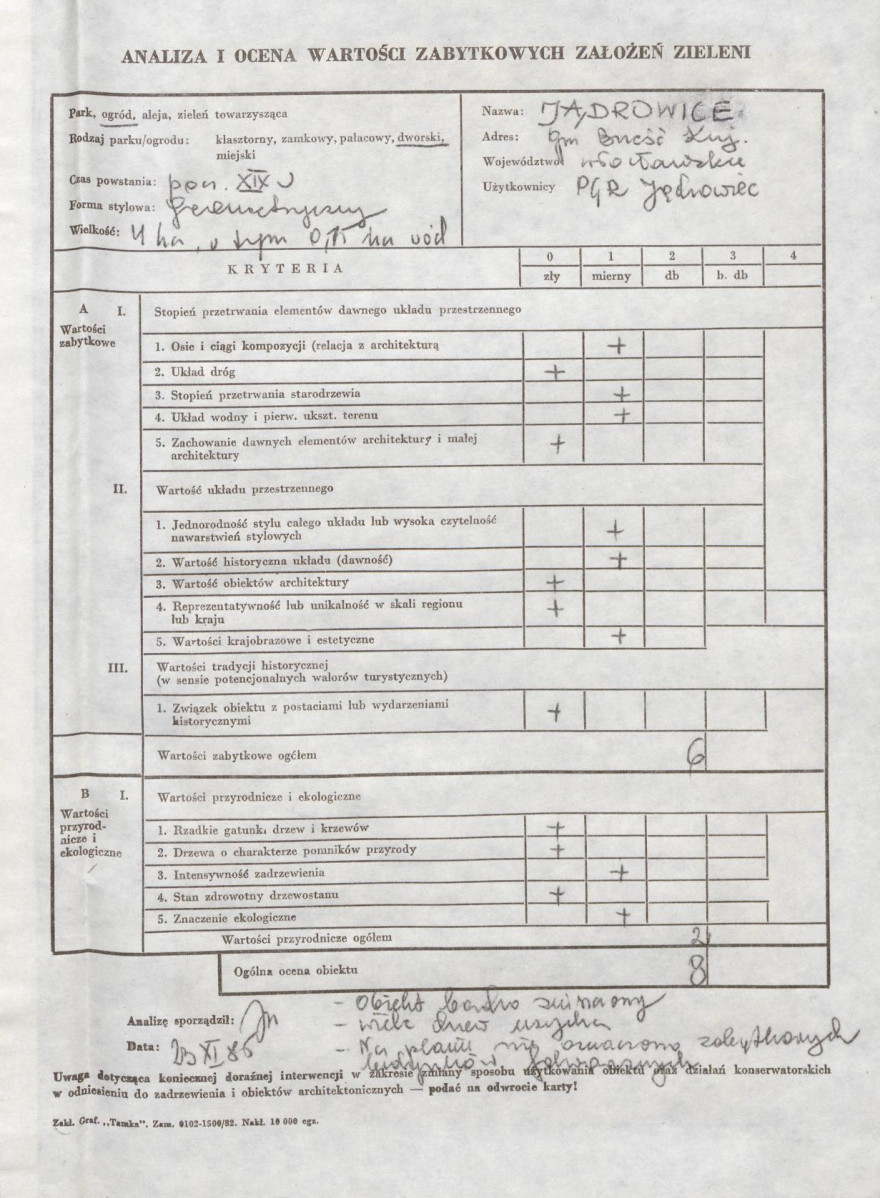 ANALIZA I OCENA WARTOŚCI ZABYTKOWYCH ZAŁOŻEŃ ZIELENI
Park, ogród, aleja, zieleń towarzysząca
Rodzaj parku/ogrodu: klasztorny, zamkowy, pałacowy, dworski,
miejski
Czas powstania: poł. XIX
Forma stylowa: geometryczny
Wielkość: 4 ha, w tym 0,15 ha wód
Nazwa: JĄDROWICE
Adres: gm Brześć Kuj.
Województwo włocławskie
Użytkownicy PGR Jądrowice
KRYTERIA
0 1 2 3 4
zły mierny db b. db
A I. Stopień przetrwania elementów dawnego układu przestrzennego
Wartości
zabytkowe
1. Osie i ciągi kompozycji (relacja z architekturą +
2. Układ dróg +
3. Stopień przetrwania starodrzewia +
4. Układ wodny i pierw. ukszt. terenu +
5. Zachowanie dawnych elementów architektury i małej +
architektury
II. Wartość układu przestrzennego
1. Jednorodność stylu całego układu lub wysoka czytelność
nawarstwień stylowych +
2. Wartość historyczna układu (dawność) +
3. Wartość obiektów architektury +
4. Reprezentatywność lub unikalność w skali regionu +
lub kraju
5. Wartości krajobrazowe i estetyczne +
III. Wartości tradycji historycznej
(w sensie potencjonalnych walorów turystycznych)
1. Związek obiektu z postaciami lub wydarzeniami +
historycznymi
Wartości zabytkowe ogółem 6
B I. Wartości przyrodnicze i ekologiczne
Wartości
przyrod-
nicze i
ekologiczne
1. Rzadkie gatunki drzew i krzewów +
2. Drzewa o charakterze pomników przyrody +
3. Intensywność zadrzewienia +
4. Stan zdrowotny drzewostanu +
5. Znaczenie ekologiczne +
Wartości przyrodnicze ogółem 2
Ogólna ocena obiektu 8
- Obiekt bardzo zniszczony
Analizę sporządził: - wiele drzew usycha
Data: 23 XI 86 - Na planie nie oznaczono zabytkowych
budynków folwarcznych
Uwaga dotycząca koniecznej doraźnej interwencji w zakresie zmiany sposobu użytkowania obiektu oraz działań konserwatorskich
w odniesieniu do zadrzewienia i obiektów architektonicznych — podać na odwrocie karty!
Zakł. Graf. „Tamka". Zam. 0102-1500/82. Nakł. 10 000 egz.